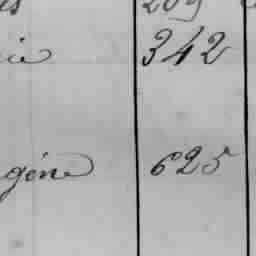 209
cie 342
gène 625